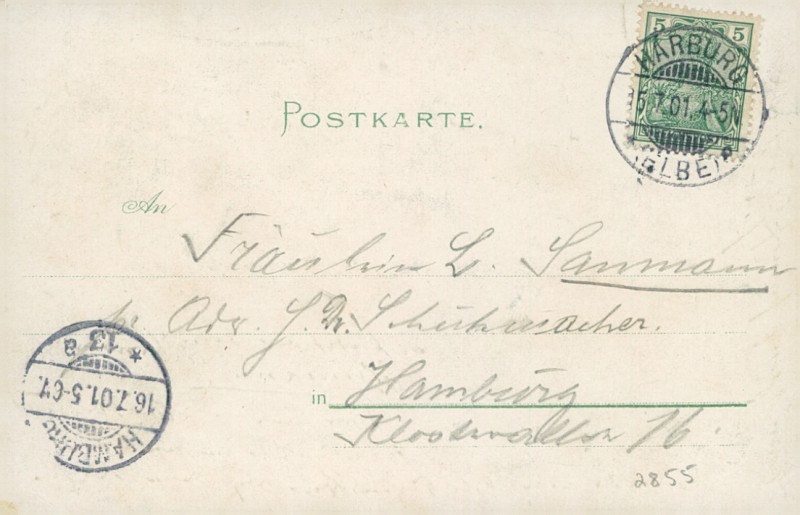 5 5
HARBURG
7.01.4-5N
(ELBE)
POSTKARTE.
An
Fräulein L. Sanmann
Adr. Schuhmacher.
in Hamburg
16.
13 a
16.7.01.5-6
HAMBURG
2855